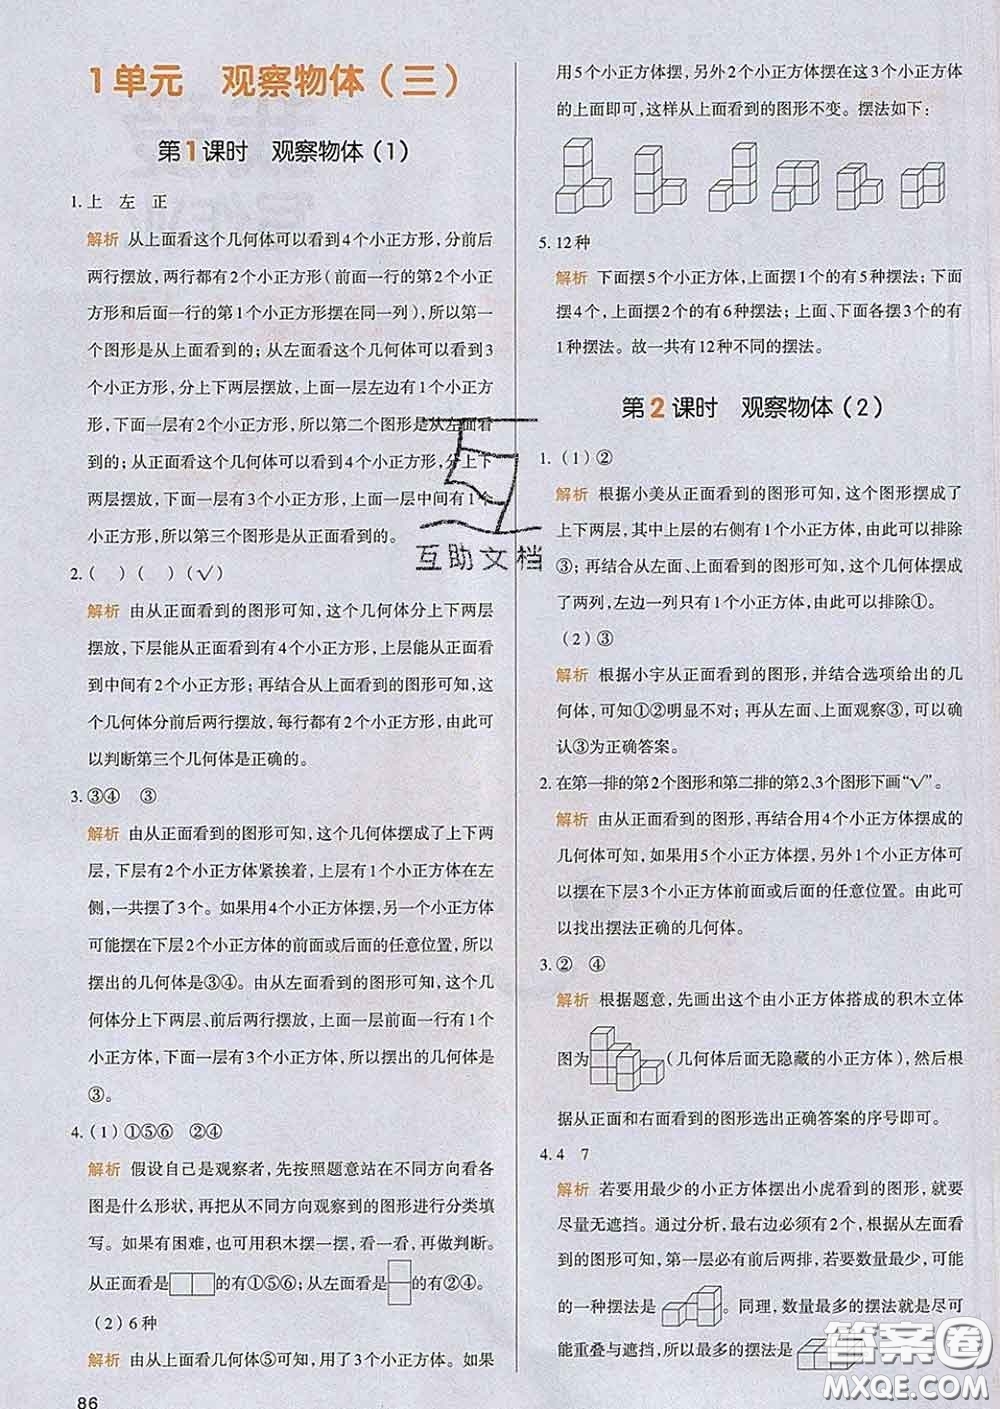 1单元 观察物体（三）
第1课时 观察物体（1）
1. 上 左 正
解析 从上面看这个几何体可以看到4个小正方形，分前后
两行摆放，两行都有2个小正方形（前面一行的第2个小正
方形和后面一行的第1个小正方形摆在同一列），所以第一
个图形是从上面看到的；从左面看这个几何体可以看到3
个小正方形，分上下两层摆放，上面一层左边有1个小正方
形，下面一层有2个小正方形，所以第二个图形是从左面看
到的；从正面看这个几何体可以看到4个小正方形，分上下
两层摆放，下面一层有3个小正方形，上面一层中间有1个
小正方形，所以第三个图形是从正面看到的。
2.（ ）（ ）（√）
解析 由从正面看到的图形可知，这个几何体分上下两层
摆放，下层能从正面看到有4个小正方形，上层能从正面看
到中间有2个小正方形；再结合从上面看到的图形可知，这
个几何体分前后两行摆放，每行都有2个小正方形，由此可
以判断第三个几何体是正确的。
3. ③④ ③
解析 由从正面看到的图形可知，这个几何体摆成了上下两
层，下层有2个小正方体紧挨着，上层有1个小正方体在左
侧，一共摆了3个。如果用4个小正方体摆，另一个小正方体
可能摆在下层2个小正方体的前面或后面的任意位置，所以
摆出的几何体是③④。由从左面看到的图形可知，这个几
何体分上下两层、前后两行摆放，上面一层后面一行有1个
小正方体，下面一层有3个小正方体，所以摆出的几何体是
③。
4.（1）①⑤⑥ ②④
解析 假设自己是观察者，先按照题意站在不同方向看各
图是什么形状，再把从不同方向观察到的图形进行分类填
写。如果有困难，也可用积木摆一摆，看一看，再做判断。
从正面看是的有①⑤⑥；从左面看是的有②④。
（2）6种
解析 由从上面看几何体⑤可知，用了3个小正方体。如果
86
用5个小正方体摆，另外2个小正方体摆在这3个小正方体
的上面即可，这样从上面看到的图形不变。摆法如下：
5. 12种
解析 下面摆5个小正方体，上面摆1个的有5种摆法；下面
摆4个，上面摆2个的有6种摆法；上面、下面各摆3个的有
1种摆法。故一共有12种不同的摆法。
第2课时 观察物体（2）
1.（1）②
解析 根据小美从正面看到的图形可知，这个图形摆成了
上下两层，其中上层的右侧有1个小正方体，由此可以排除
③；再结合从左面看到的图形可知，这个几何体摆成
了两列，左边一列只有1个小正方体，由此可以排除①。
（2）③
解析 根据小宇从正面看到的图形，并结合选项给出的几
何体，可知①②明显不对；再从左面、上面观察③，可以确
认③为正确答案。
2. 在第一排的第2个图形和第二排的第2、3个图形下画“√”。
解析 由从正面看到的图形，再结合用4个小正方体摆成的
几何体可知，如果用5个小正方体摆，另外1个小正方体可
以摆在下层3个小正方体前面或后面的任意位置。由此可
以找出摆法正确的几何体。
3. ② ④
解析 根据题意，先画出这个由小正方体搭成的积木立体
图为（几何体后面无隐藏的小正方体），然后根
据从正面和右面看到的图形选出正确答案的序号即可。
4. 4 7
解析 若要用最少的小正方体摆出小虎看到的图形，就要
尽量无遮挡。通过分析，最右边必须有2个，根据从左面看
到的图形可知，第一层必有前后两排，若要数量最少，可能
的一种摆法是。同理，数量最多的摆法就是尽可
能重叠与遮挡，所以最多的摆法是
互助文档
答案圈
MXQE.COM